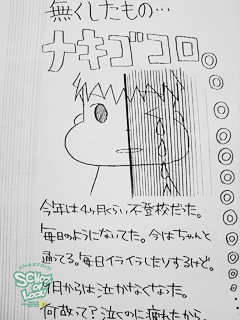 無くしたもの…
ナキゴコロ。
今年は4ヶ月くらい不登校だった。
毎日のようにないてた。今はちゃんと
通ってる。毎日イライラしたりするけど。
月からは泣かなくなった。
何故って?泣くのに疲れたから。
SCHOOL OF LOCK!